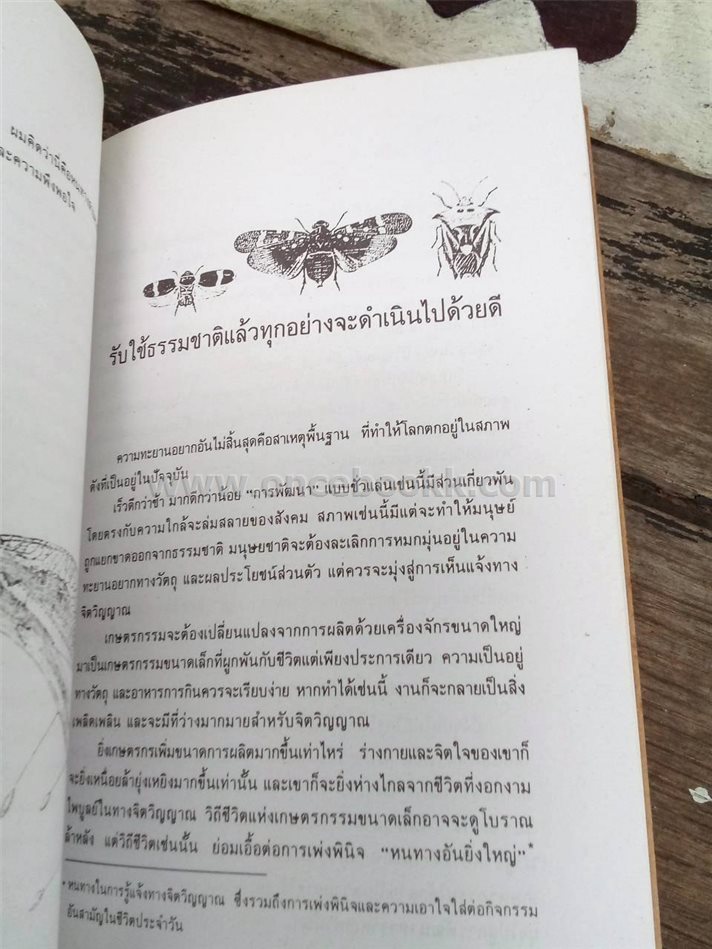 ผมคิดว่านี่คือ
ละความพึงพอใจ
รับใช้ธรรมชาติแล้วทุกอย่างจะดำเนินไปด้วยดี
ความทะยานอยากอันไม่สิ้นสุดคือสาเหตุพื้นฐาน ที่ทำให้โลกตกอยู่ในสภาพ
ดังที่เป็นอยู่ในปัจจุบัน
www.oncebookk.com
เร็วดีกว่าช้า มากดีกว่าน้อย “การพัฒนา” แบบชั่วแล่นเช่นนี้มีส่วนเกี่ยวพัน
โดยตรงกับความใกล้จะล่มสลายของสังคม สภาพเช่นนี้มีแต่จะทำให้มนุษย์
ถูกแยกขาดออกจากธรรมชาติ มนุษยชาติจะต้องละเลิกการหมกมุ่นอยู่ในความ
ทะยานอยากทางวัตถุ และผลประโยชน์ส่วนตัว แต่ควรจะมุ่งสู่การเห็นแจ้งทาง
จิตวิญญาณ
เกษตรกรรมจะต้องเปลี่ยนแปลงจากการผลิตด้วยเครื่องจักรขนาดใหญ่
มาเป็นเกษตรกรรมขนาดเล็กที่ผูกพันกับชีวิตแต่เพียงประการเดียว ความเป็นอยู่
ทางวัตถุ และอาหารการกินควรจะเรียบง่าย หากทำได้เช่นนี้ งานก็จะกลายเป็นสิ่ง
เพลิดเพลิน และจะมีที่ว่างมากมายสำหรับจิตวิญญาณ
ยิ่งเกษตรกรเพิ่มขนาดการผลิตมากขึ้นเท่าไหร่ ร่างกายและจิตใจของเขาก็
จะยิ่งเหนื่อยล้ายุ่งเหยิงมากขึ้นเท่านั้น และเขาก็จะยิ่งห่างไกลจากชีวิตที่งอกงาม
ไพบูลย์ในทางจิตวิญญาณ วิถีชีวิตแห่งเกษตรกรรมขนาดเล็กอาจจะดูโบราณ
ล้าหลัง แต่วิถีชีวิตเช่นนั้น ย่อมเอื้อต่อการเพ่งพินิจ “หนทางอันยิ่งใหญ่”*
* หนทางในการรู้แจ้งทางจิตวิญญาณ ซึ่งรวมถึงการเพ่งพินิจและความเอาใจใส่ต่อกิจกรรม
อันสามัญในชีวิตประจำวัน